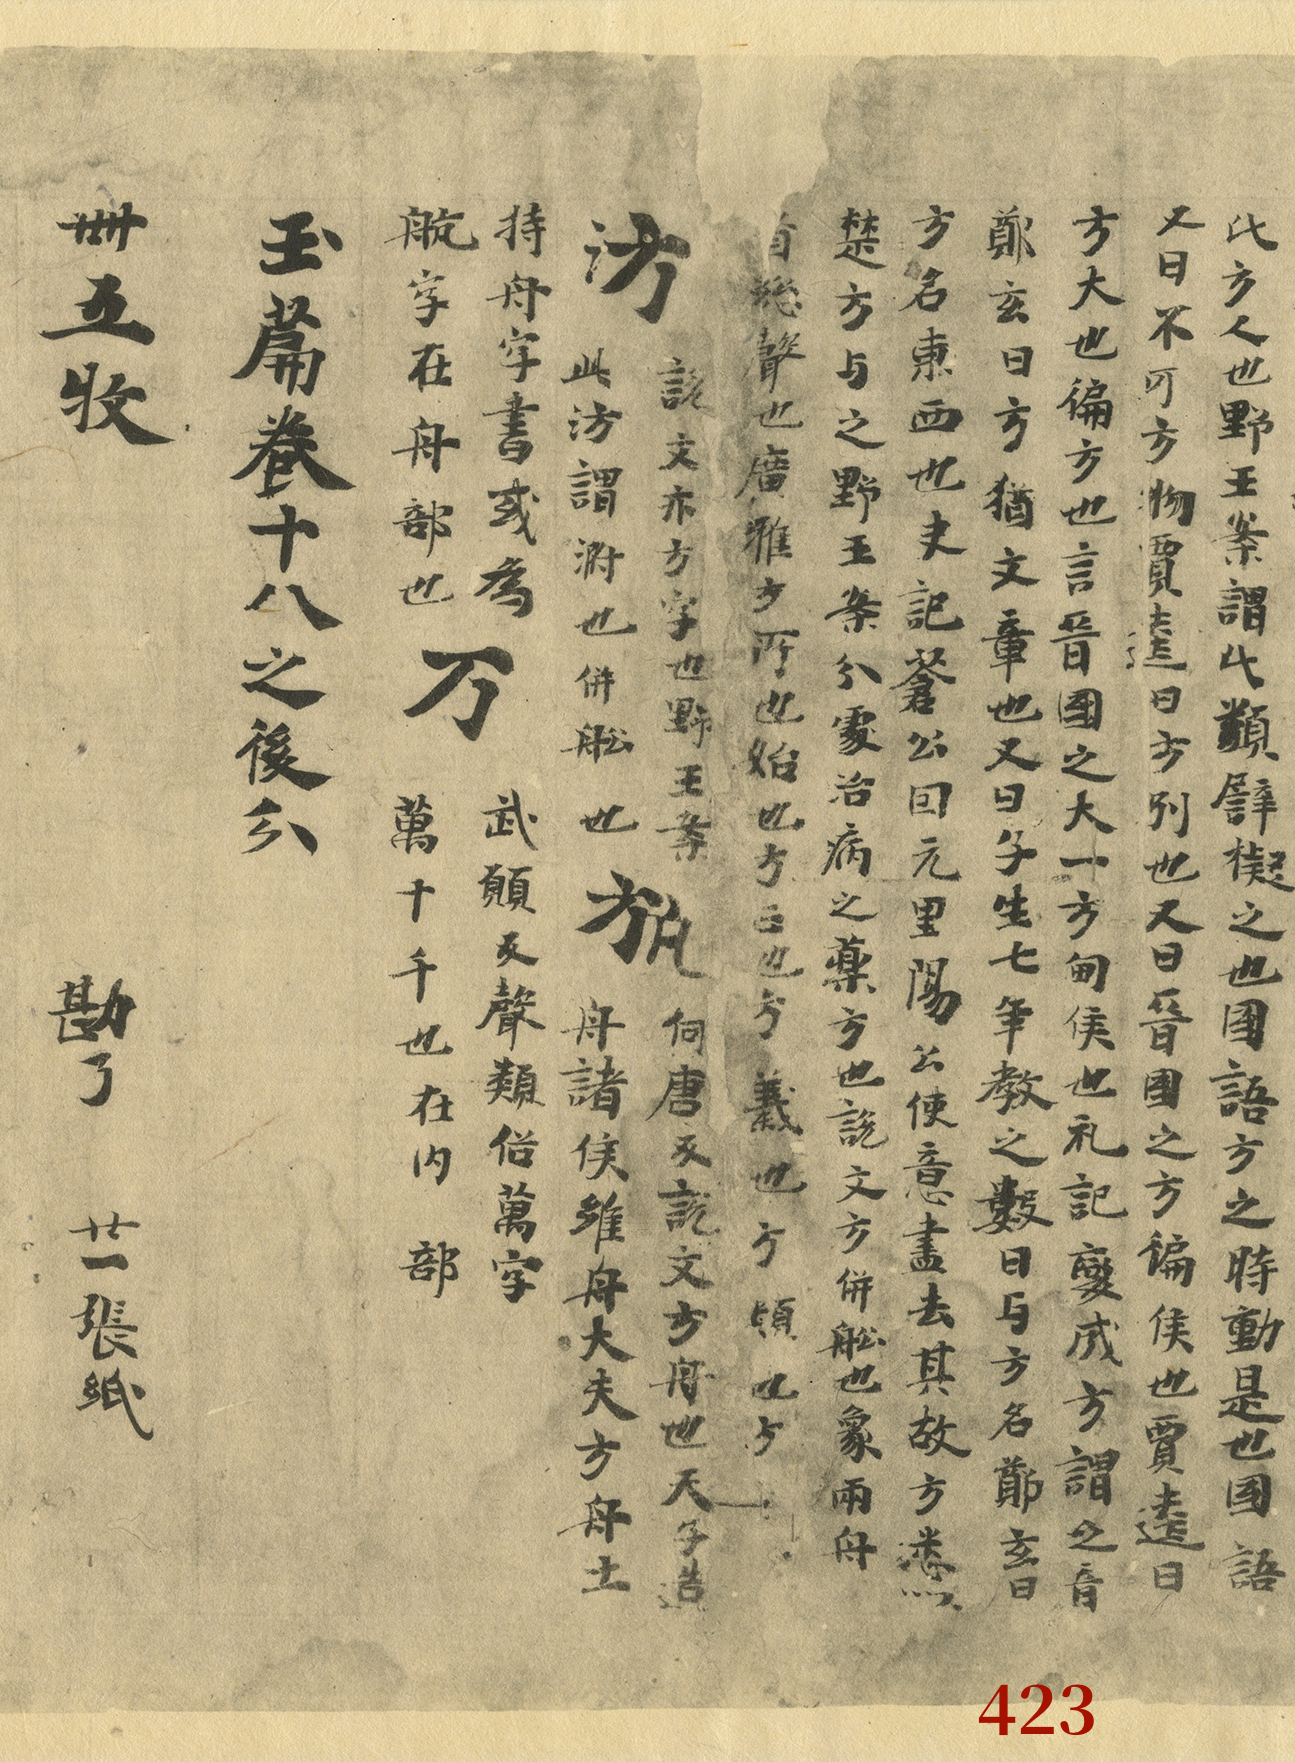 比方人也野王案謂比類譬擬之也国語方之時動是也国語
又曰不可方物賈逵曰方別也又曰晉国之方徧侯也賈逵曰
方大也徧方也言晉国之大一方甸侯也礼記變成方謂之音
鄭玄曰方猶文章也又曰子生七年教之數日与方名鄭玄曰
方名東西也史記蒼公同元里陽公使意盡去其故方悉
禁方与之野王案分處治病之藥方也説文方併舩也象兩舟
首總聲也廣雅方所也始也方正也方義也方類也方
汸
説文亦方字也野王案
此汸謂泭也併舩也
㫄
何唐反説文方舟也天子造
舟諸侯維舟大夫方舟士
持舟字書或為
航字在舟部也
万
武願反聲類俗萬字
萬十千也在内部
玉篇卷十八之後分
卌五牧
勘了
廿一張紙
423